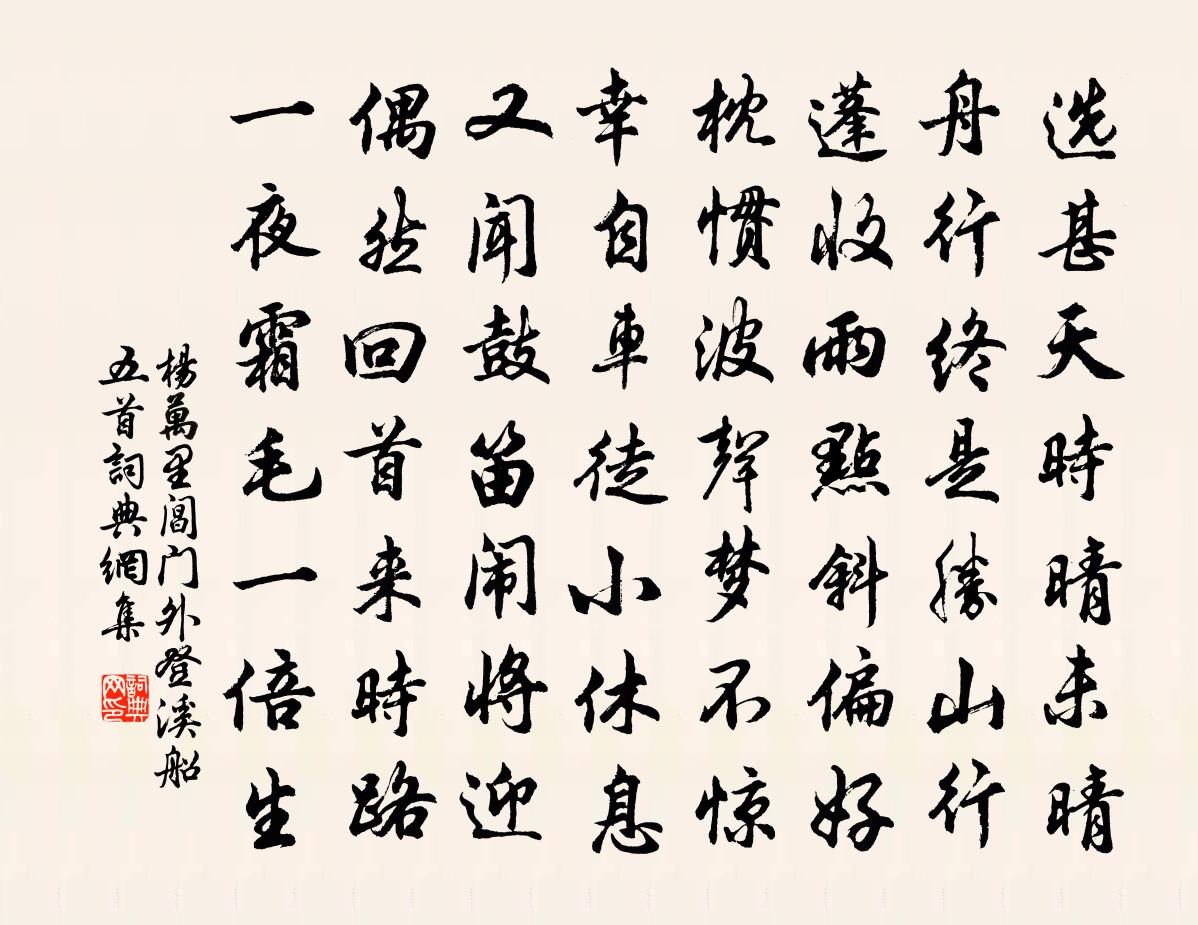 选甚天時晴未晴
舟行终是勝山行
蓬收雨點斜偏好
枕慣波聲梦不惊
幸自車徒小休息
又闻鼓笛闹将迎
偶然回首来時路
一夜霜毛一倍生
楊萬里閶门外登溪船
五首詞典網集
詞典网印